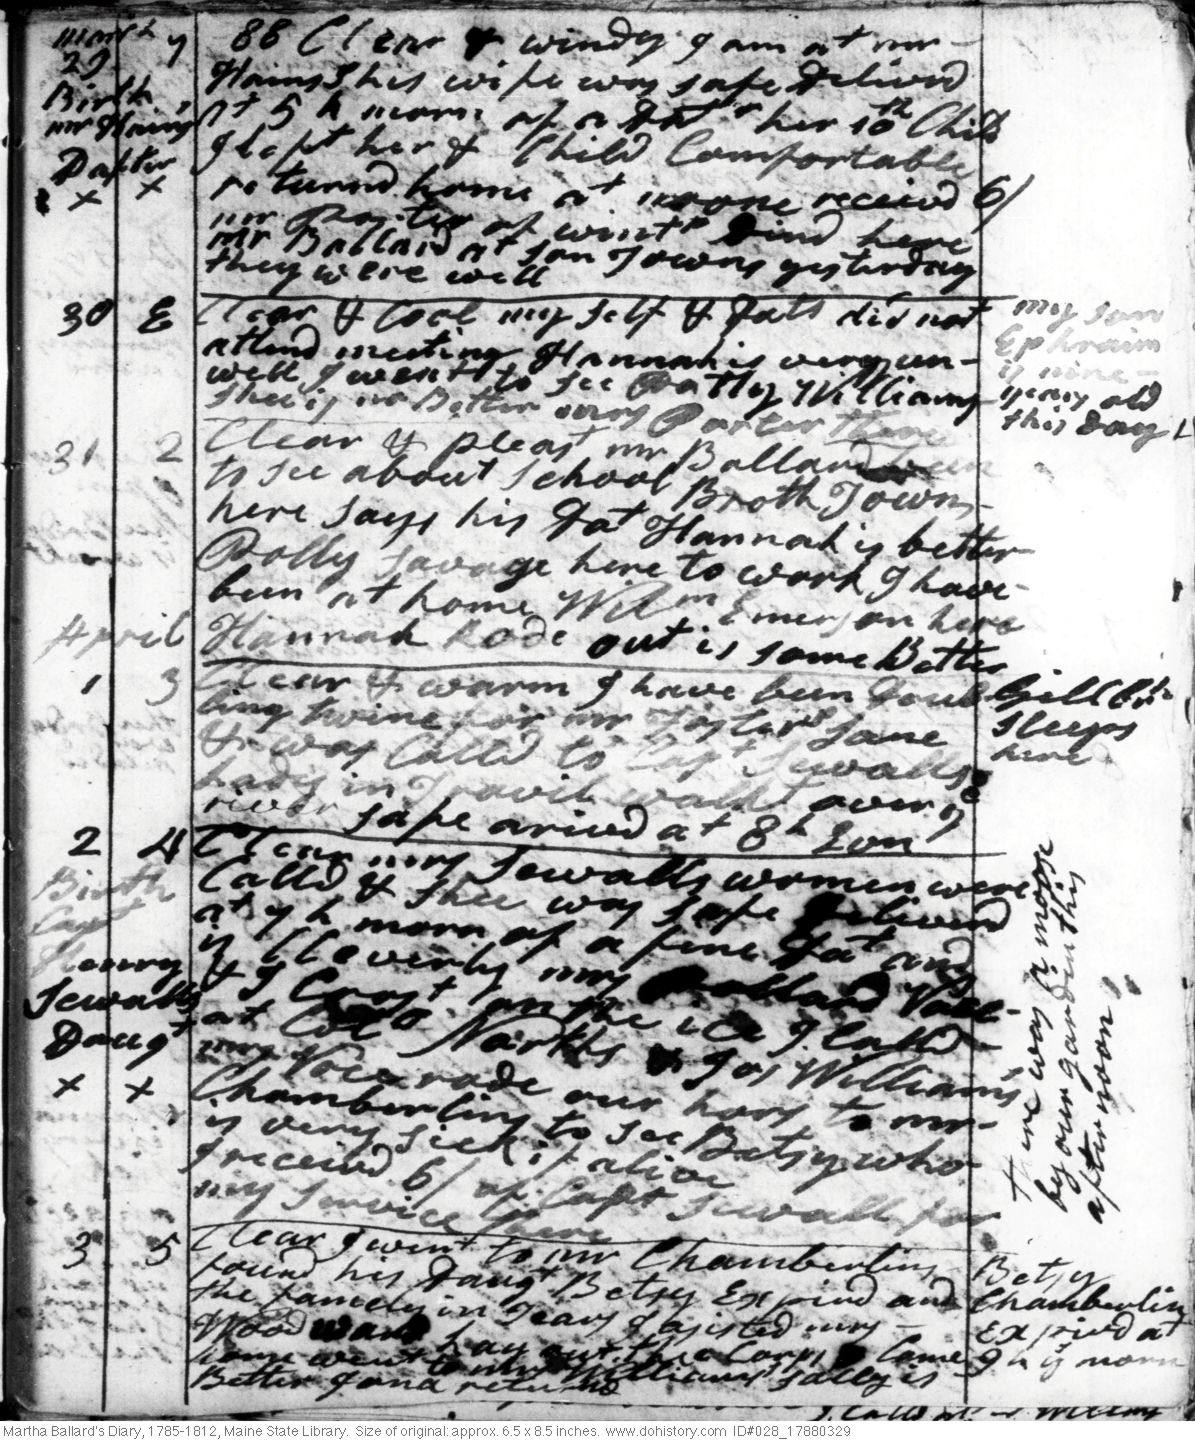 march
29 7
Birth
mr Hains
Dafter
x x
88 Clear & windy I am at mr
Hains his wife was safe delivrd
at 5 h morn of a Dat her 10th Child
I left her & Child Comfortable
returnd home at noone received 6/
mr of wintp Dind here
mr Ballard at Son Towns yesterday
they were well
30 E
Clear & Cool my self & Dats did not
attend meeting Hannah is very un-
well I went to see Patty Williams
Shee is no Better mrs Porter there
my son
Ephraim
is nine
years old
this Day
31 2
Clear & pleast mr Ballard been
to see about School Broth Towns
here says his Dat Hannah is better
Polly Savage here to work I have
been at home Wilm Emerson here
Hannah Rode out is some Better
April
1 3
Clear & warm I have been Doub
ling twine for mr Foster Jane
& was Calld to Capt Sewalls
Lady in Travil walkt over ye
river safe arived at 8 h Evn
Gillbrt
sleeps
here
2 4
Birth
Capt
Henry
Sewalls
Daugt
x x
Clear mrs Sewalls women were
Calld & Shee was safe Delivrd
at 7 h morn of a fine Dat and
is Cleverly mrs Pollard
& I Crost on the ice I Calld
at Colo Norths & Jos Williams
mrs rode our hors to mr
Chamberlins to see Betsy who
is very sick if alive
I received 6/ of Capt Sewall for
my Service there
there was a moose
by our gardin this
after noon
3 5
Clear I went to mr Chamberlins
found his Daugt Betsy Expird and
the famely in Tears I asisted mrs
Woodward lay out the Corps Came
home went to mr Williams Sally is
Better I and returnd
Betsy
Chamberlin
Expird at
9 h is morn
Martha Ballard's Diary, 1785-1812, Maine State Library. Size of original: approx. 6.5 x 8.5 inches. www.dohistory.com ID#028_17880329